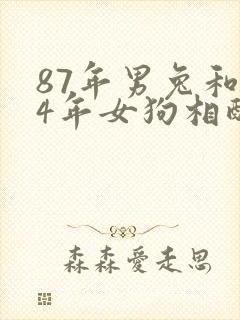 87年男兔和
4年女狗相配
森森爱走思